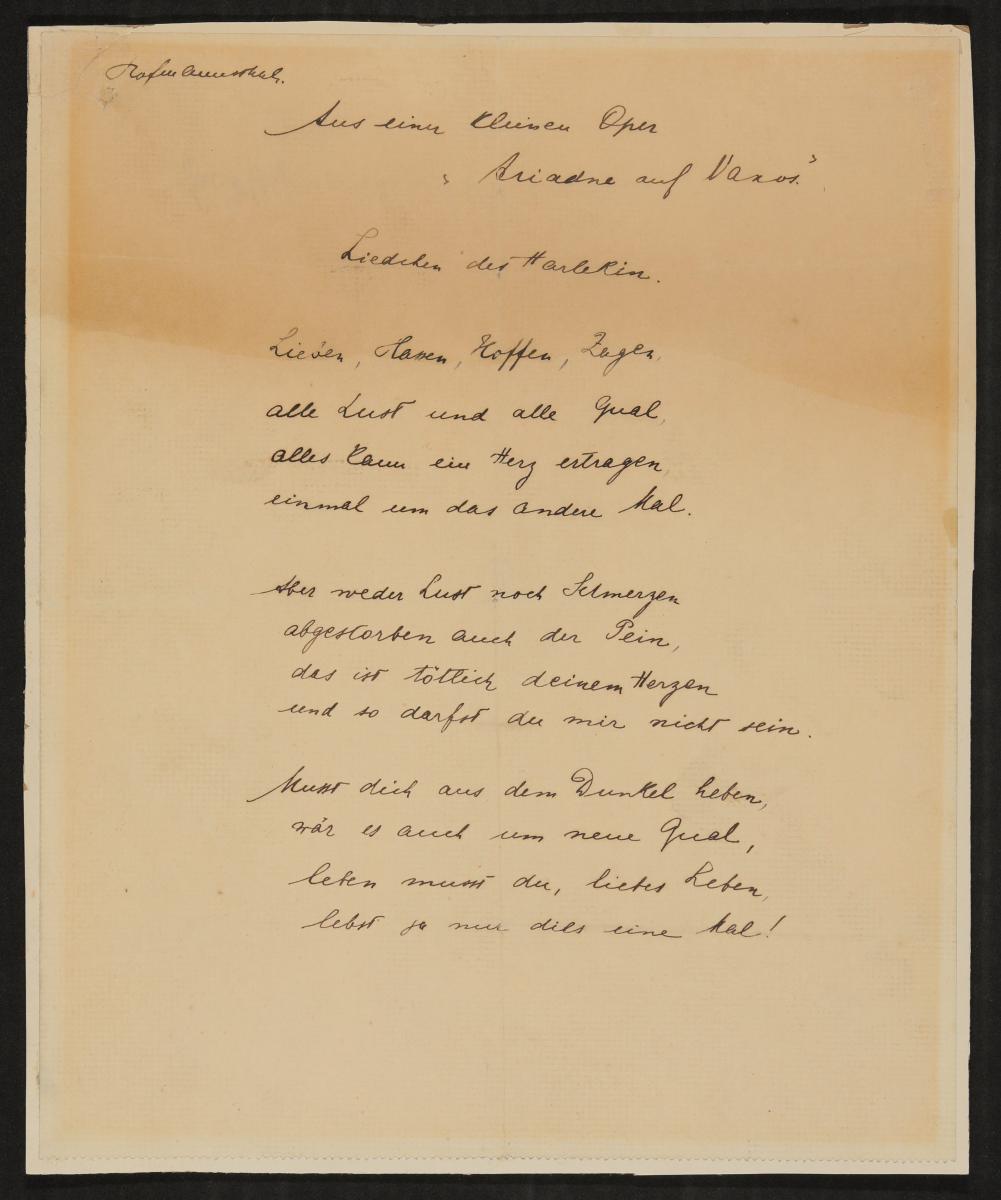 Hofmannsthal.
Aus einer kleinen Oper
"Ariadne auf Naxos."
Liedchen des Harlekin.
Lieben, Hassen, Hoffen, Zagen,
alle Lust und alle Qual,
alles kann ein Herz ertragen
einmal um das andere Mal.
Aber weder Lust noch Schmerzen
abgestorben auch der Pein,
das ist tötlich deinem Herzen
und so darfst du mir nicht sein.
Musst dich aus dem Dunkel heben,
wär es auch um neue Qual,
leben musst du, liebes Leben,
lebst ja nur dies eine Mal!